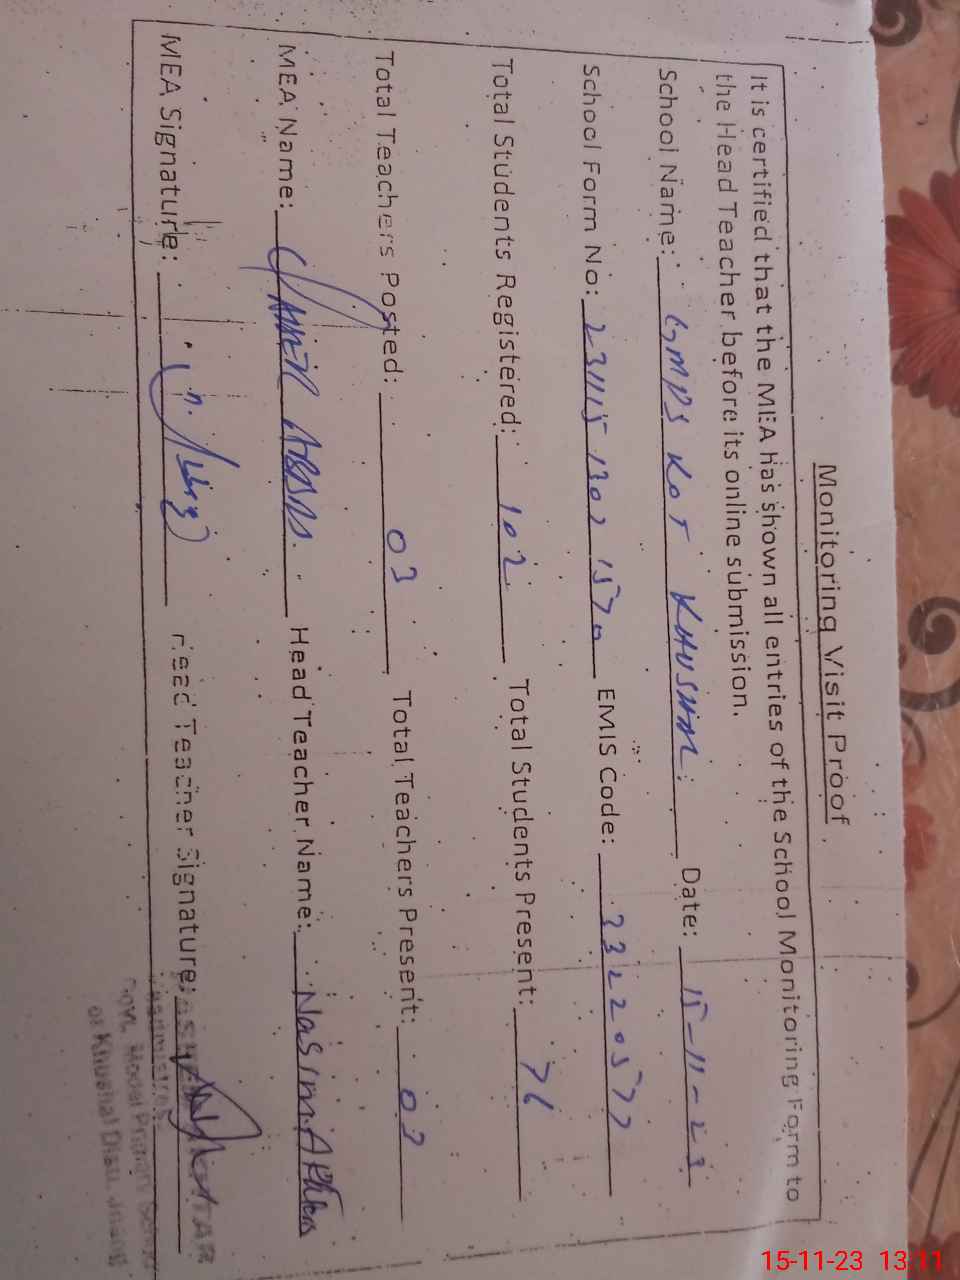 Monitoring Visit Proof
It is certified that the MEA has shown all entries of the School Monitoring Form to
the Head Teacher before its online submission.
School Name: GMPS KOT KHUSHAL Date: 15-11-23
School Form No: EMIS Code: 33220577
Total Students Registered: 102 Total Students Present: 76
Total Teachers Posted: 03 Total Teachers Present: 03
MEA Name: AMIR ABBAS. Head Teacher Name: Nasim Akhtar
MEA Signature: Head Teacher Signature:
Headmistress
Govt. Model Primary School
ot Khushal Distt. Jhang
15-11-23 13:11